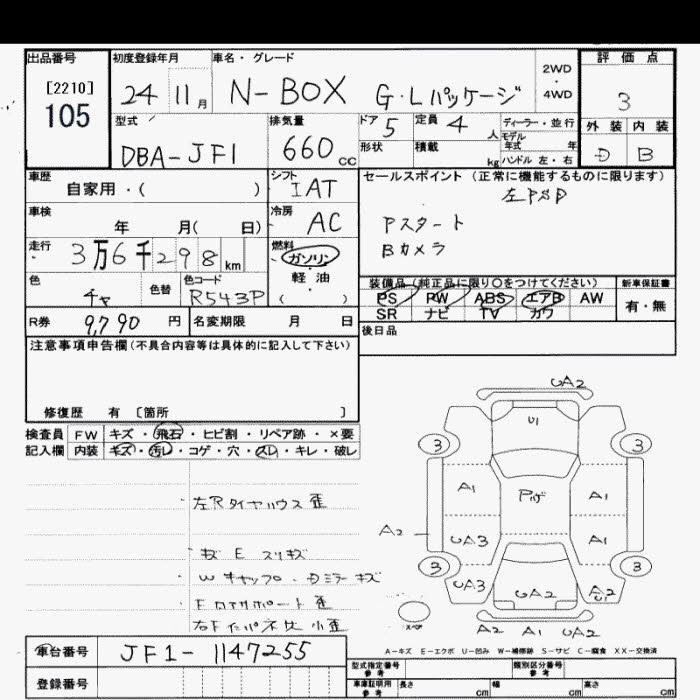 出品番号
[2210]
105
初度登録年月
24 11月
車名・グレード
N-BOX G・Lパッケージ
2WD
・
4WD
評価点
3
外装 内装
D B
型式
DBA-JF1
排気量
660cc
ドア 5
定員 4人
形状
積載 kg
ディーラー・並行
モデル
年式 年
ハンドル 左・右
車歴
自家用・( )
シフト
IAT
セールスポイント(正常に機能するものに限ります)
左PSD
Pスタート
Bカメラ
車検
年 月( 日)
冷房
AC
走行
3万6千298km
燃料
ガソリン
・
軽油
( )
色
チャ
色替
色コード
R543P
装備品(純正品に限り○をつけてください)
PS PW ABS エアB AW
SR ナビ TV カワ
新車保証書
有・無
R券 9,790円
名変期限 月 日
後日品
注意事項申告欄(不具合内容等は具体的に記入して下さい)
修復歴 有 〔箇所 〕
検査員 FW キズ・飛石・ヒビ割・リペア跡・×要
記入欄 内装 キズ・汚レ・コゲ・穴・スレ・キレ・破レ
左Rタイヤハウス歪
キズ E スリキズ
Wキャップ・Dミラーキズ
右Fインパネ 小歪
UA2
U1
3 3
A1 Pルーフ A1
A2 UA3 A1
3 3
UA3 UA2 A2
U1
スペア
A2 A1 UA2
A-キズ E-エクボ U-凹み W-補修跡 S-サビ C-腐食 XX-交換済
車台番号 JF1-1147255
登録番号
型式指定番号
参考
類別区分番号
参考
車庫証明用
参考
長さ cm 幅 cm 高さ cm